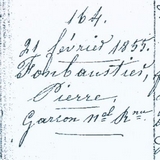 164.
21 février 1855.
Fombaustier,
Pierre
Garson n.el R